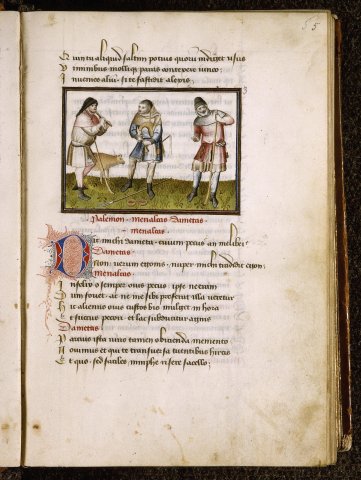 55
Quin tu aliquid saltim potius quoru indiget usus
Viminibus molliqz paras contexere iunco
Inuenies aliu si te fastidit alexis
Palemon menalcas Dametas
menalcas
Dic michi dameta cuium pecus an melibei
Dametas
Non verum egonis nuper michi tradidit egon
menalcas
Infelix o semper ouis pecus ipse neeram
Dum fouet ac ne me sibi preferat illa veretur
Hic alienus ouis custos bis mulget in hora
Et succus pecori et lac subducitur agnis
Dametas
Parcius ista viris tamen obicienda memento
Nouimus et qui te transuersa tuentibus hircis
Et quo sed faciles nimphe risere sacello